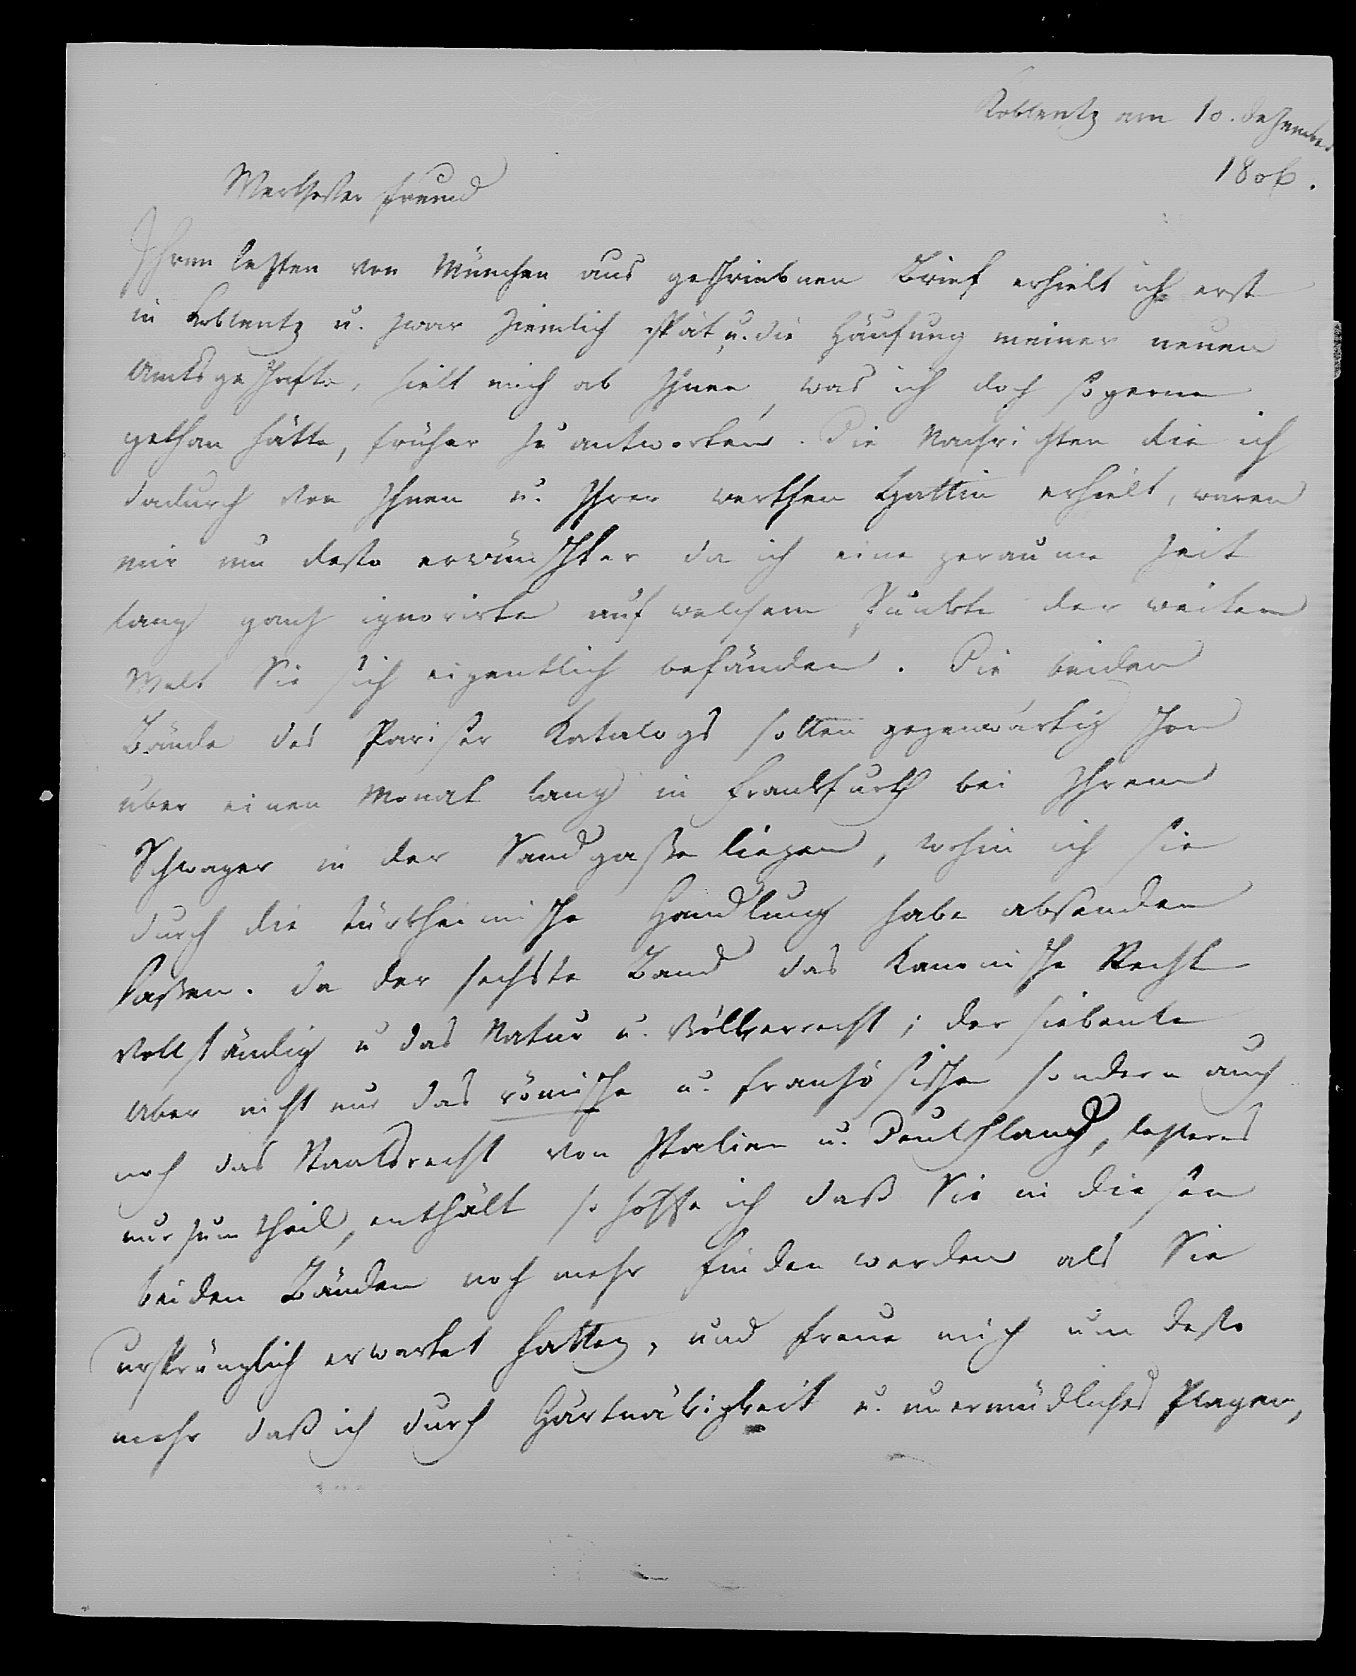 Koblentz am 10. Dezember
1806.
Werthester Freund
Ihren letzten von München aus geschriebnen Brief erhielt ich erst
in Koblentz u. zwar ziemlich spät, u. die Häufung meiner neuen
Amtsgeschäfte, hielt mich ab Ihnen, was ich doch so gerne
gethan hätte, früher zu antworten. Die Nachrichten die ich
dadurch von Ihnen u. Ihrer werthen Gattin erhielt, waren
mir um desto erwünschter da ich eine geraume Zeit
lang ganz ignorirte auf welchem Punkte der weiten
Welt Sie sich eigentlich befänden. Die beiden
Bände des Pariser Katalogs sollen gegenwärtig schon
über einen Monat lang in Frankfurth bei Ihrem
Schwager in der Sandgasse liegen, wohin ich sie
durch die türkheimische Handlung habe absenden
lassen. Da der sechste Band das kanonische Recht
vollständig u das Natur u. Völkerrecht; der siebente
aber nicht nur das römische u. französische sondern auch
noch das Staatsrecht von Italien u. Deutschland, letzteres
nur zum theil, enthält so hoffe ich daß Sie in diesen
beiden Bänden noch mehr finden werden als Sie
ursprünglich erwartet hatten, und freue mich um desto
mehr daß ich durch Hartnäkigkeit u. unermüdliches Plagen,